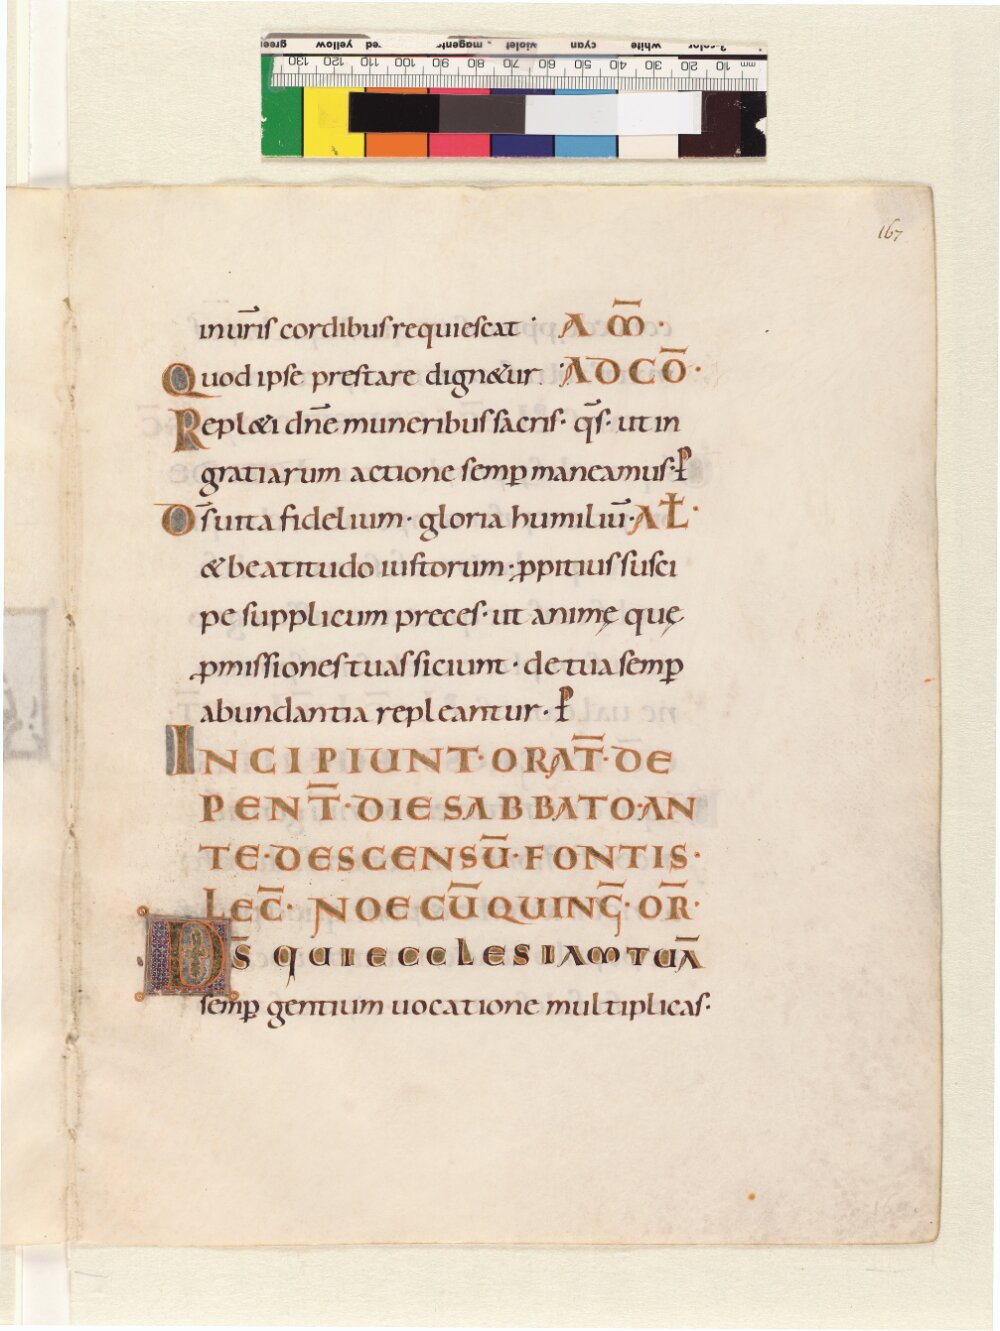 green yellow red magenta violet cyan white 3-color
130 120 110 100 90 80 70 60 50 40 30 20 10 mm
167
inur̄is cordibus requiescat · A M̄ ·
Quod ipse prestare dignetur · AD CŌ ·
Repl&i dn̄e muneribus sacris · q̄s · ut in
gratiarum actione semꝑ maneamus · ꝑ
Ds̄ uita fidelium · gloria humiliū · AL̄ ·
& beatitudo iustorum · ꝓpitius susci
pe supplicum preces · ut animę quę
ꝓmissiones tuas siciunt · de tua semꝑ
abundantia repleantur · ꝑ
INCIPIUNT · ORAT̄ · DE
PENT̄ · DIE SABBATO · AN
TE · DESCENSŪ · FONTIS ·
LEC̄ · NOE CŪ QUINḠ · OR̄ ·
DS̄ QUI ECCLESIAM TUĀ
semꝑ gentium uocatione multiplicas ·